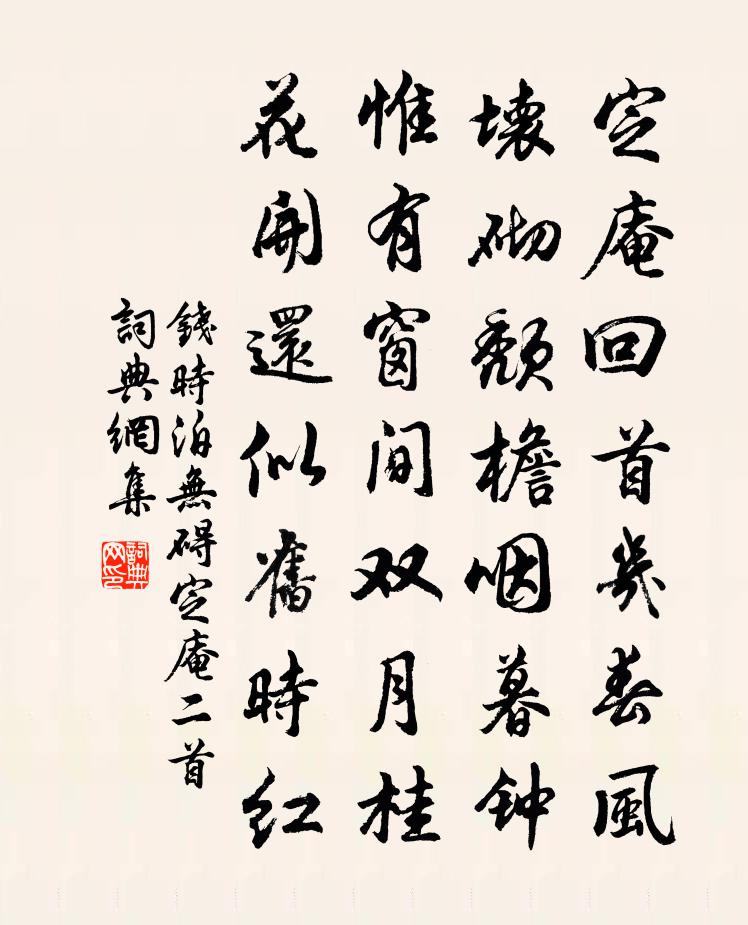 定庵回首幾春風
壞砌頹檐咽暮钟
惟有窗间双月桂
花開還似舊時红
錢時泊無碍定庵二首
詞典網集
詞典網印